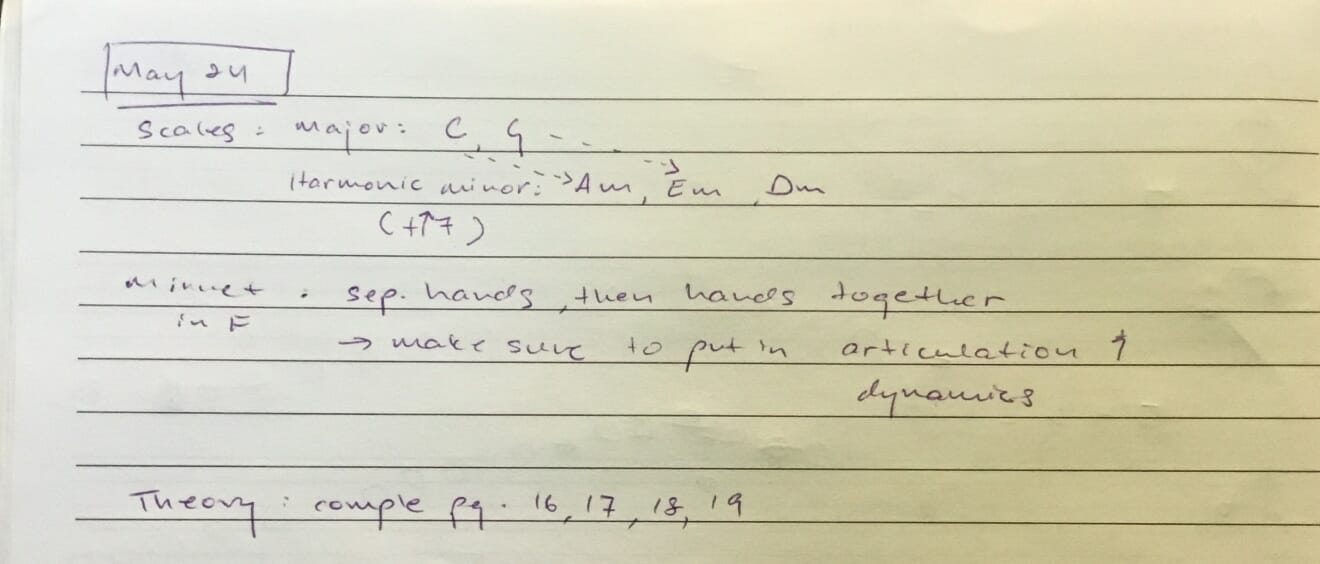 May 24
Scales: Major: C, G
Harmonic minor: Am, Em, Dm
(+↑7)
Minuet : sep. hands, then hands together
in F
→ make sure to put in articulation &
dynamics
Theory: comple pg. 16, 17, 18, 19